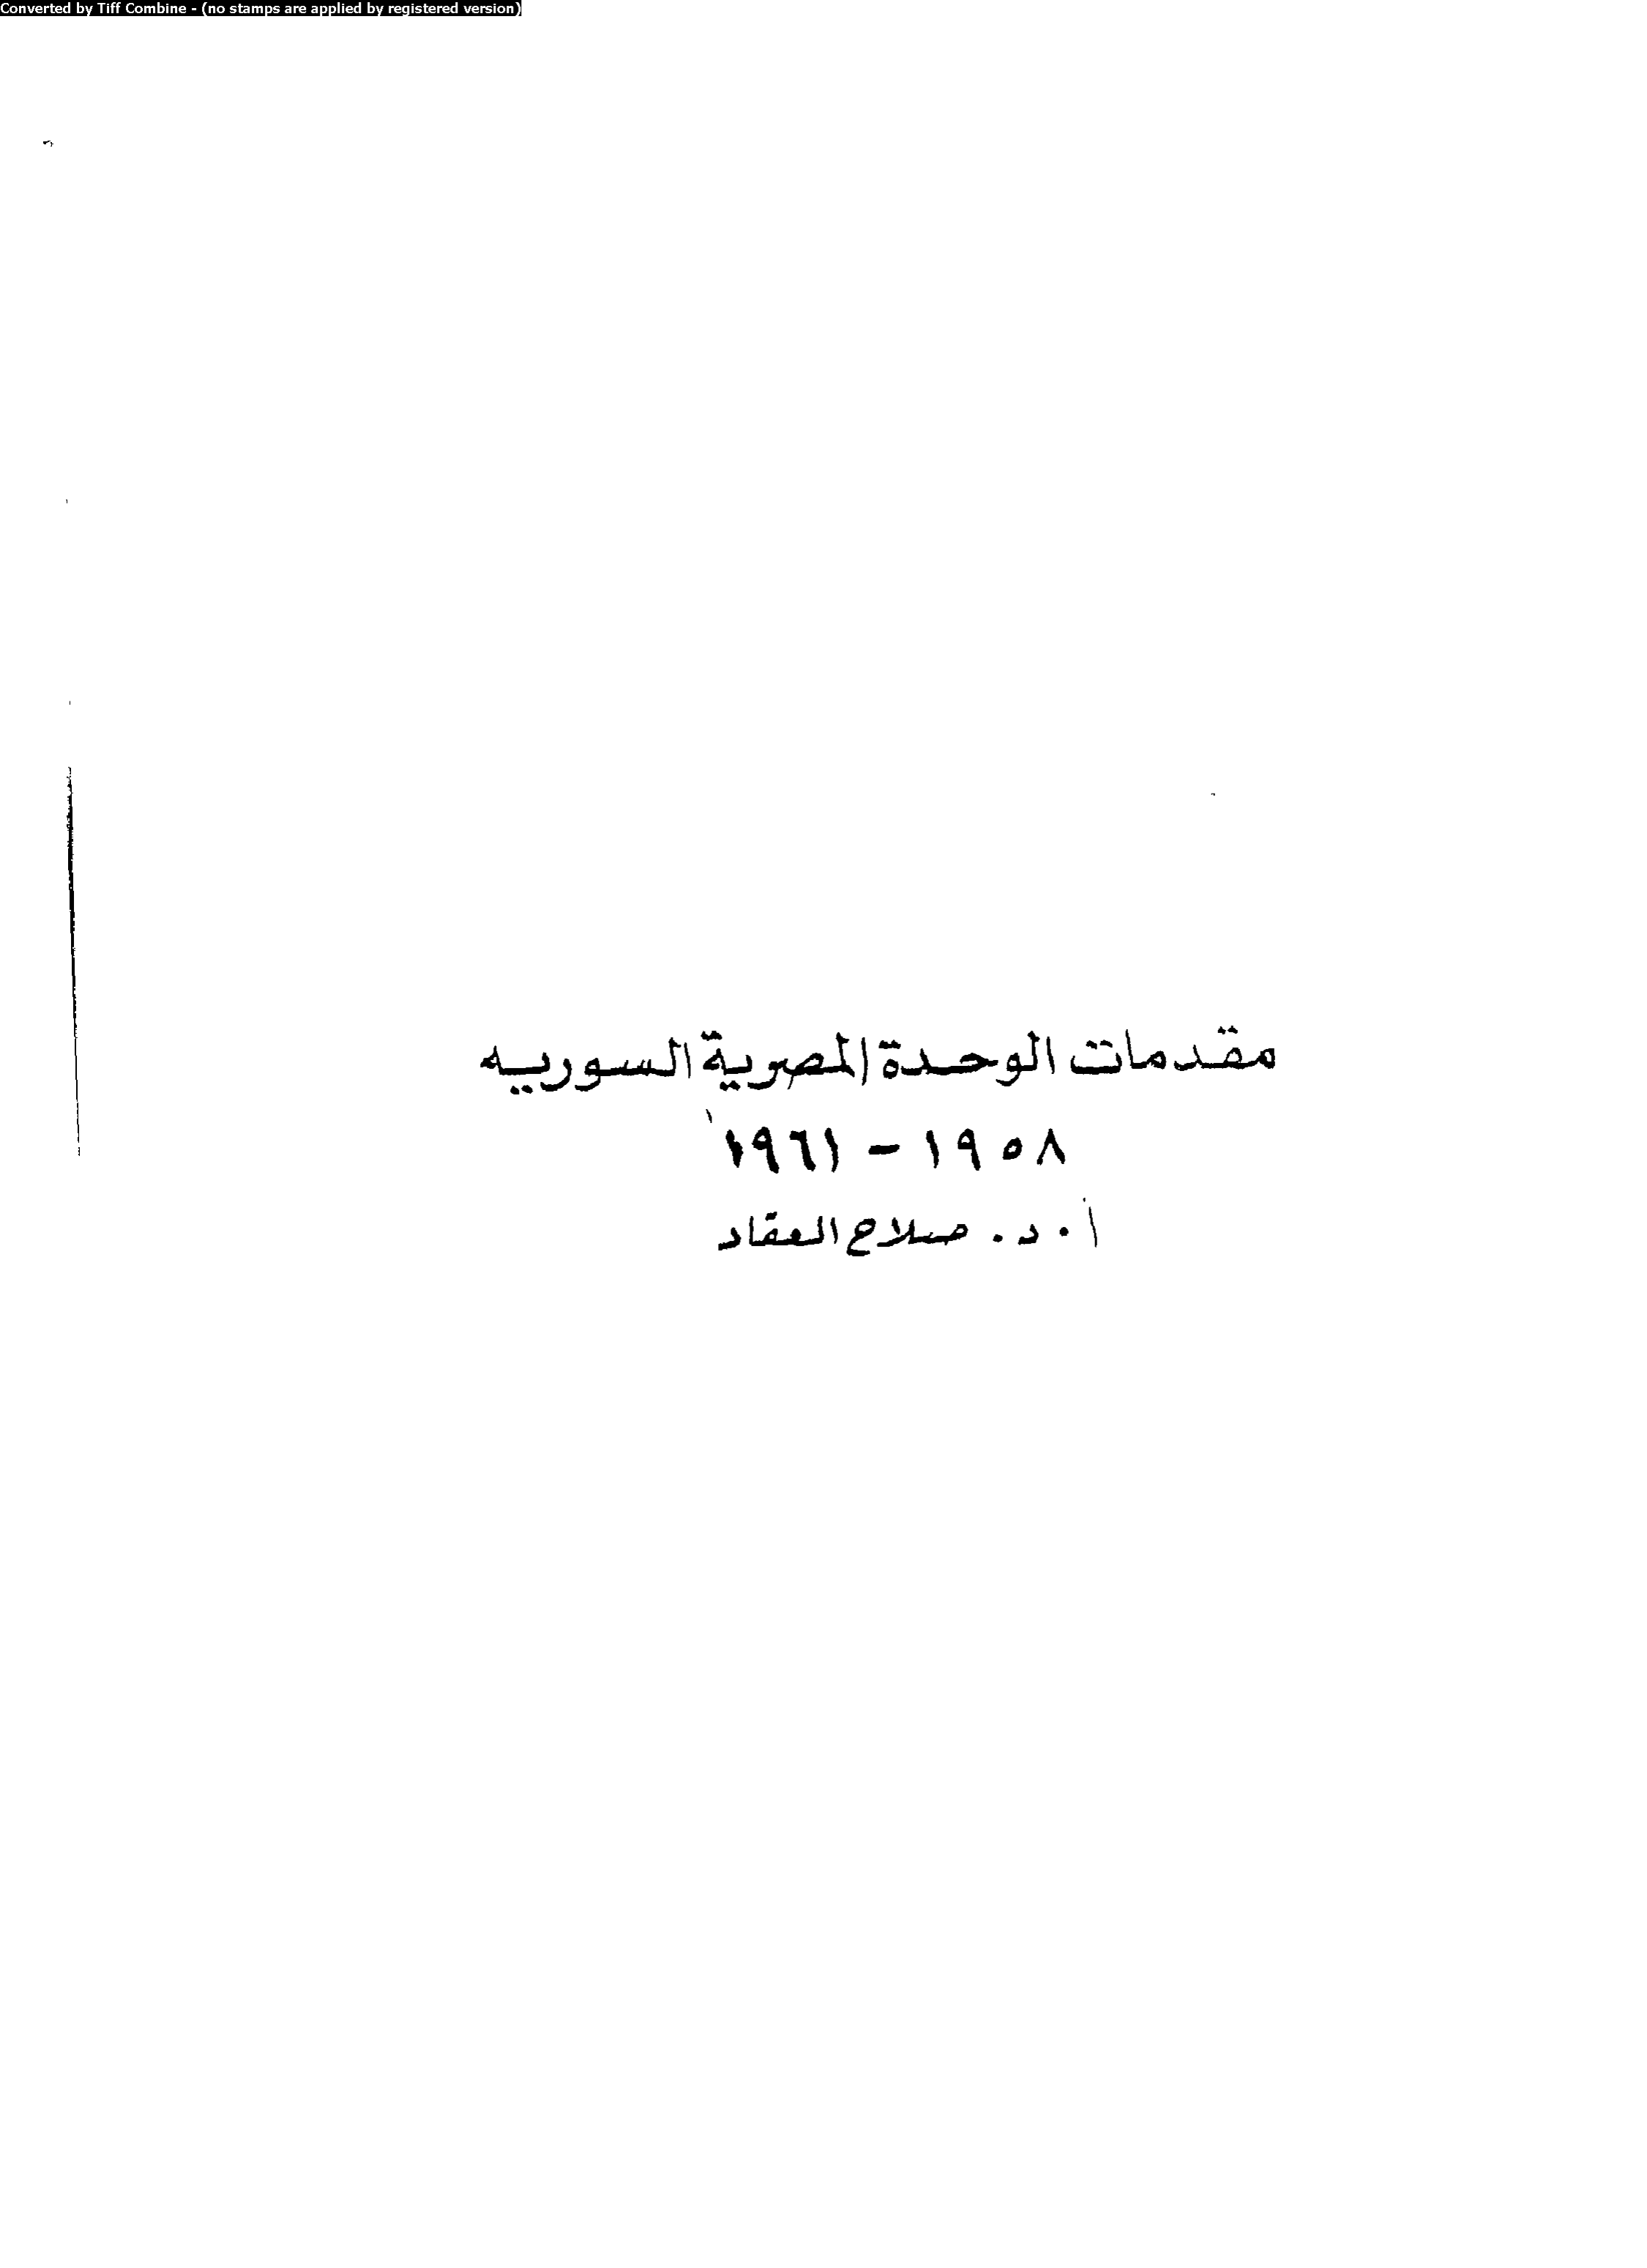 Converted by Tiff Combine - (no stamps are applied by registered version)
مقدمات الوحدة المصرية السوريه
١٩٥٨ - ١٩٦١
أ . د . صلاح العقاد